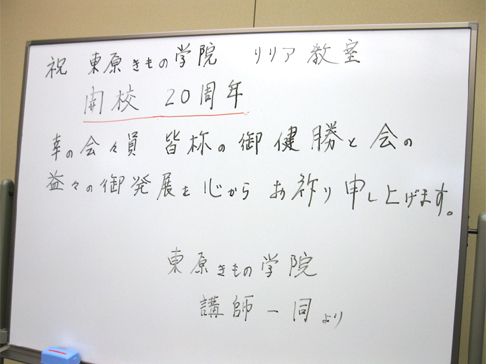 祝 東原きもの学院 リリア教室
開校 20周年
幸の会々員 皆称の御健勝と会の
益々の御発展を心からお祈り申し上げます。
東原きもの学院
講師一同より